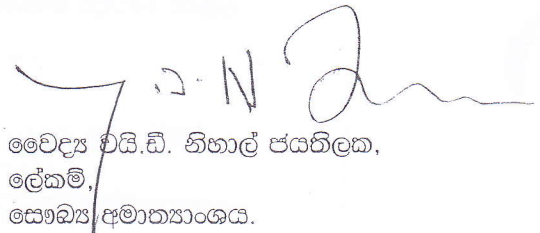 වෛද්‍ය වයි.ඩී. නිහාල් ජයතිලක,
ලේකම්,
සෞඛ්‍ය අමාත්‍යාංශය.